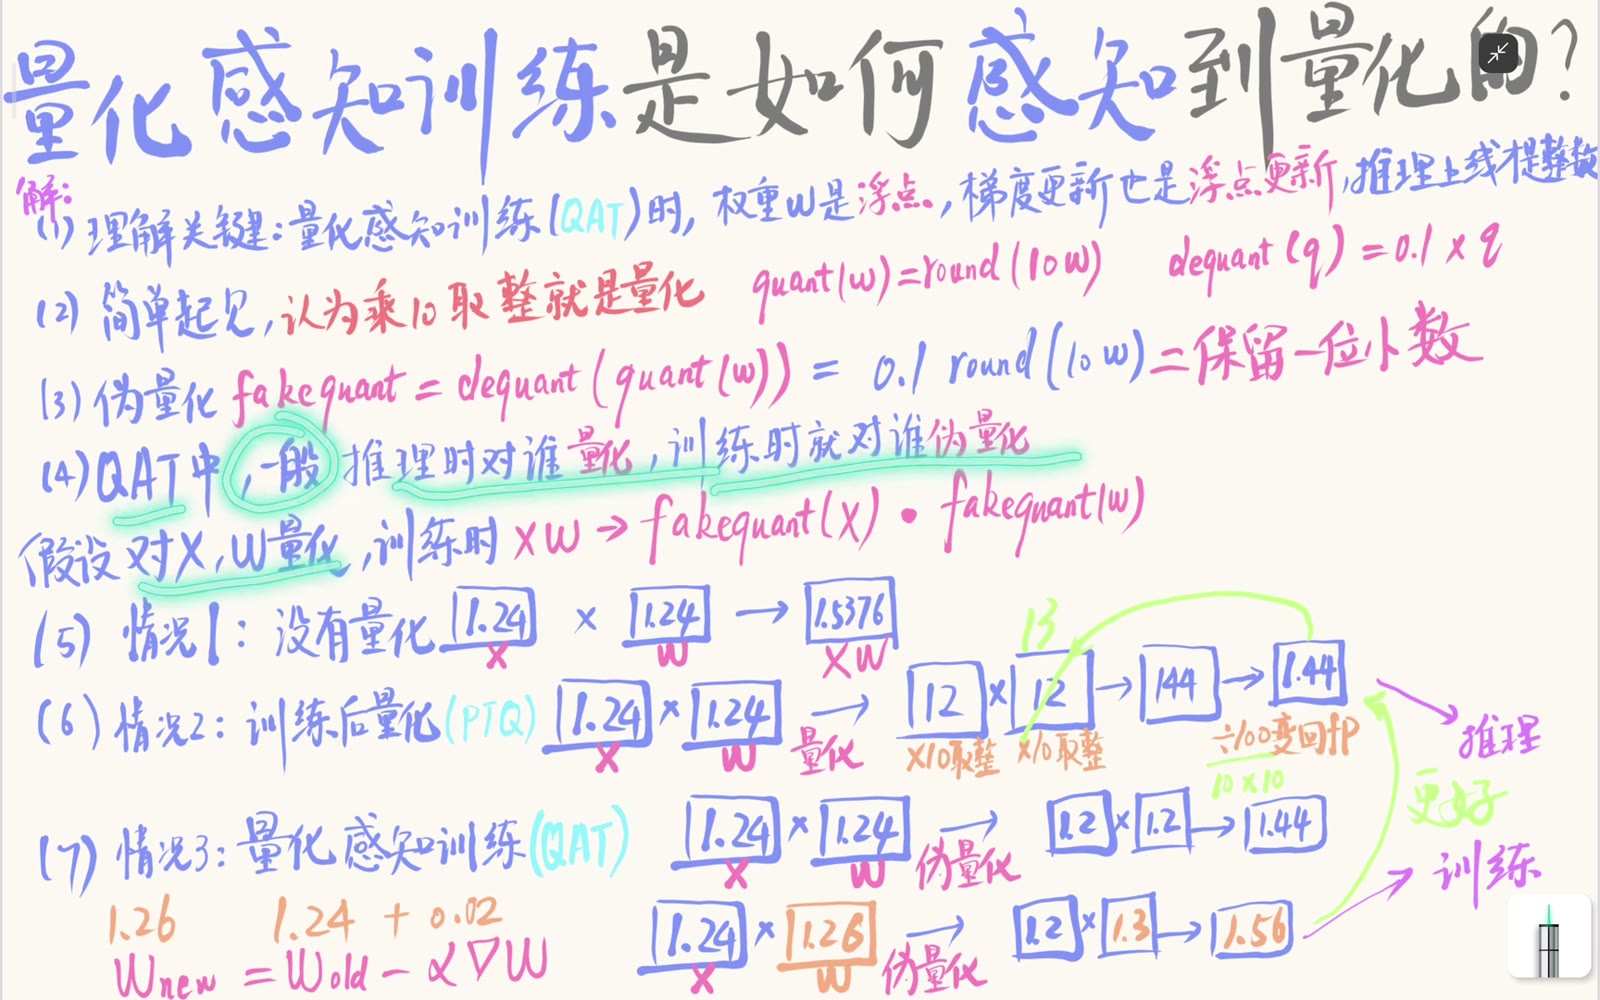 量化感知训练是如何感知到量化的?
解:
(1) 理解关键:量化感知训练(QAT)时, 权重W是浮点, 梯度更新也是浮点更新,推理上线才是整数
(2) 简单起见,认为乘10取整就是量化 quant(w)=round(10w) dequant(q)=0.1×q
(3) 伪量化 fakequant = dequant(quant(w)) = 0.1 round(10w)=保留一位小数
(4) QAT中,一般推理时对谁量化,训练时就对谁伪量化
假设对X,W量化,训练时 XW → fakequant(X) • fakequant(w)
(5) 情况1: 没有量化 1.24 × 1.24 → 1.5376
X W XW
13
(6) 情况2: 训练后量化(PTQ) 1.24 × 1.24 → 12 × 12 → 144 → 1.44
X W 量化 ×10取整 ×10取整 ÷100变回fP 推理
10×10
更好
(7) 情况3: 量化感知训练(QAT) 1.24 × 1.24 → 1.2 × 1.2 → 1.44
X W 伪量化 训练
1.26 1.24 + 0.02 1.24 × 1.26 → 1.2 × 1.3 → 1.56
Wnew = Wold - α∇W X W 伪量化